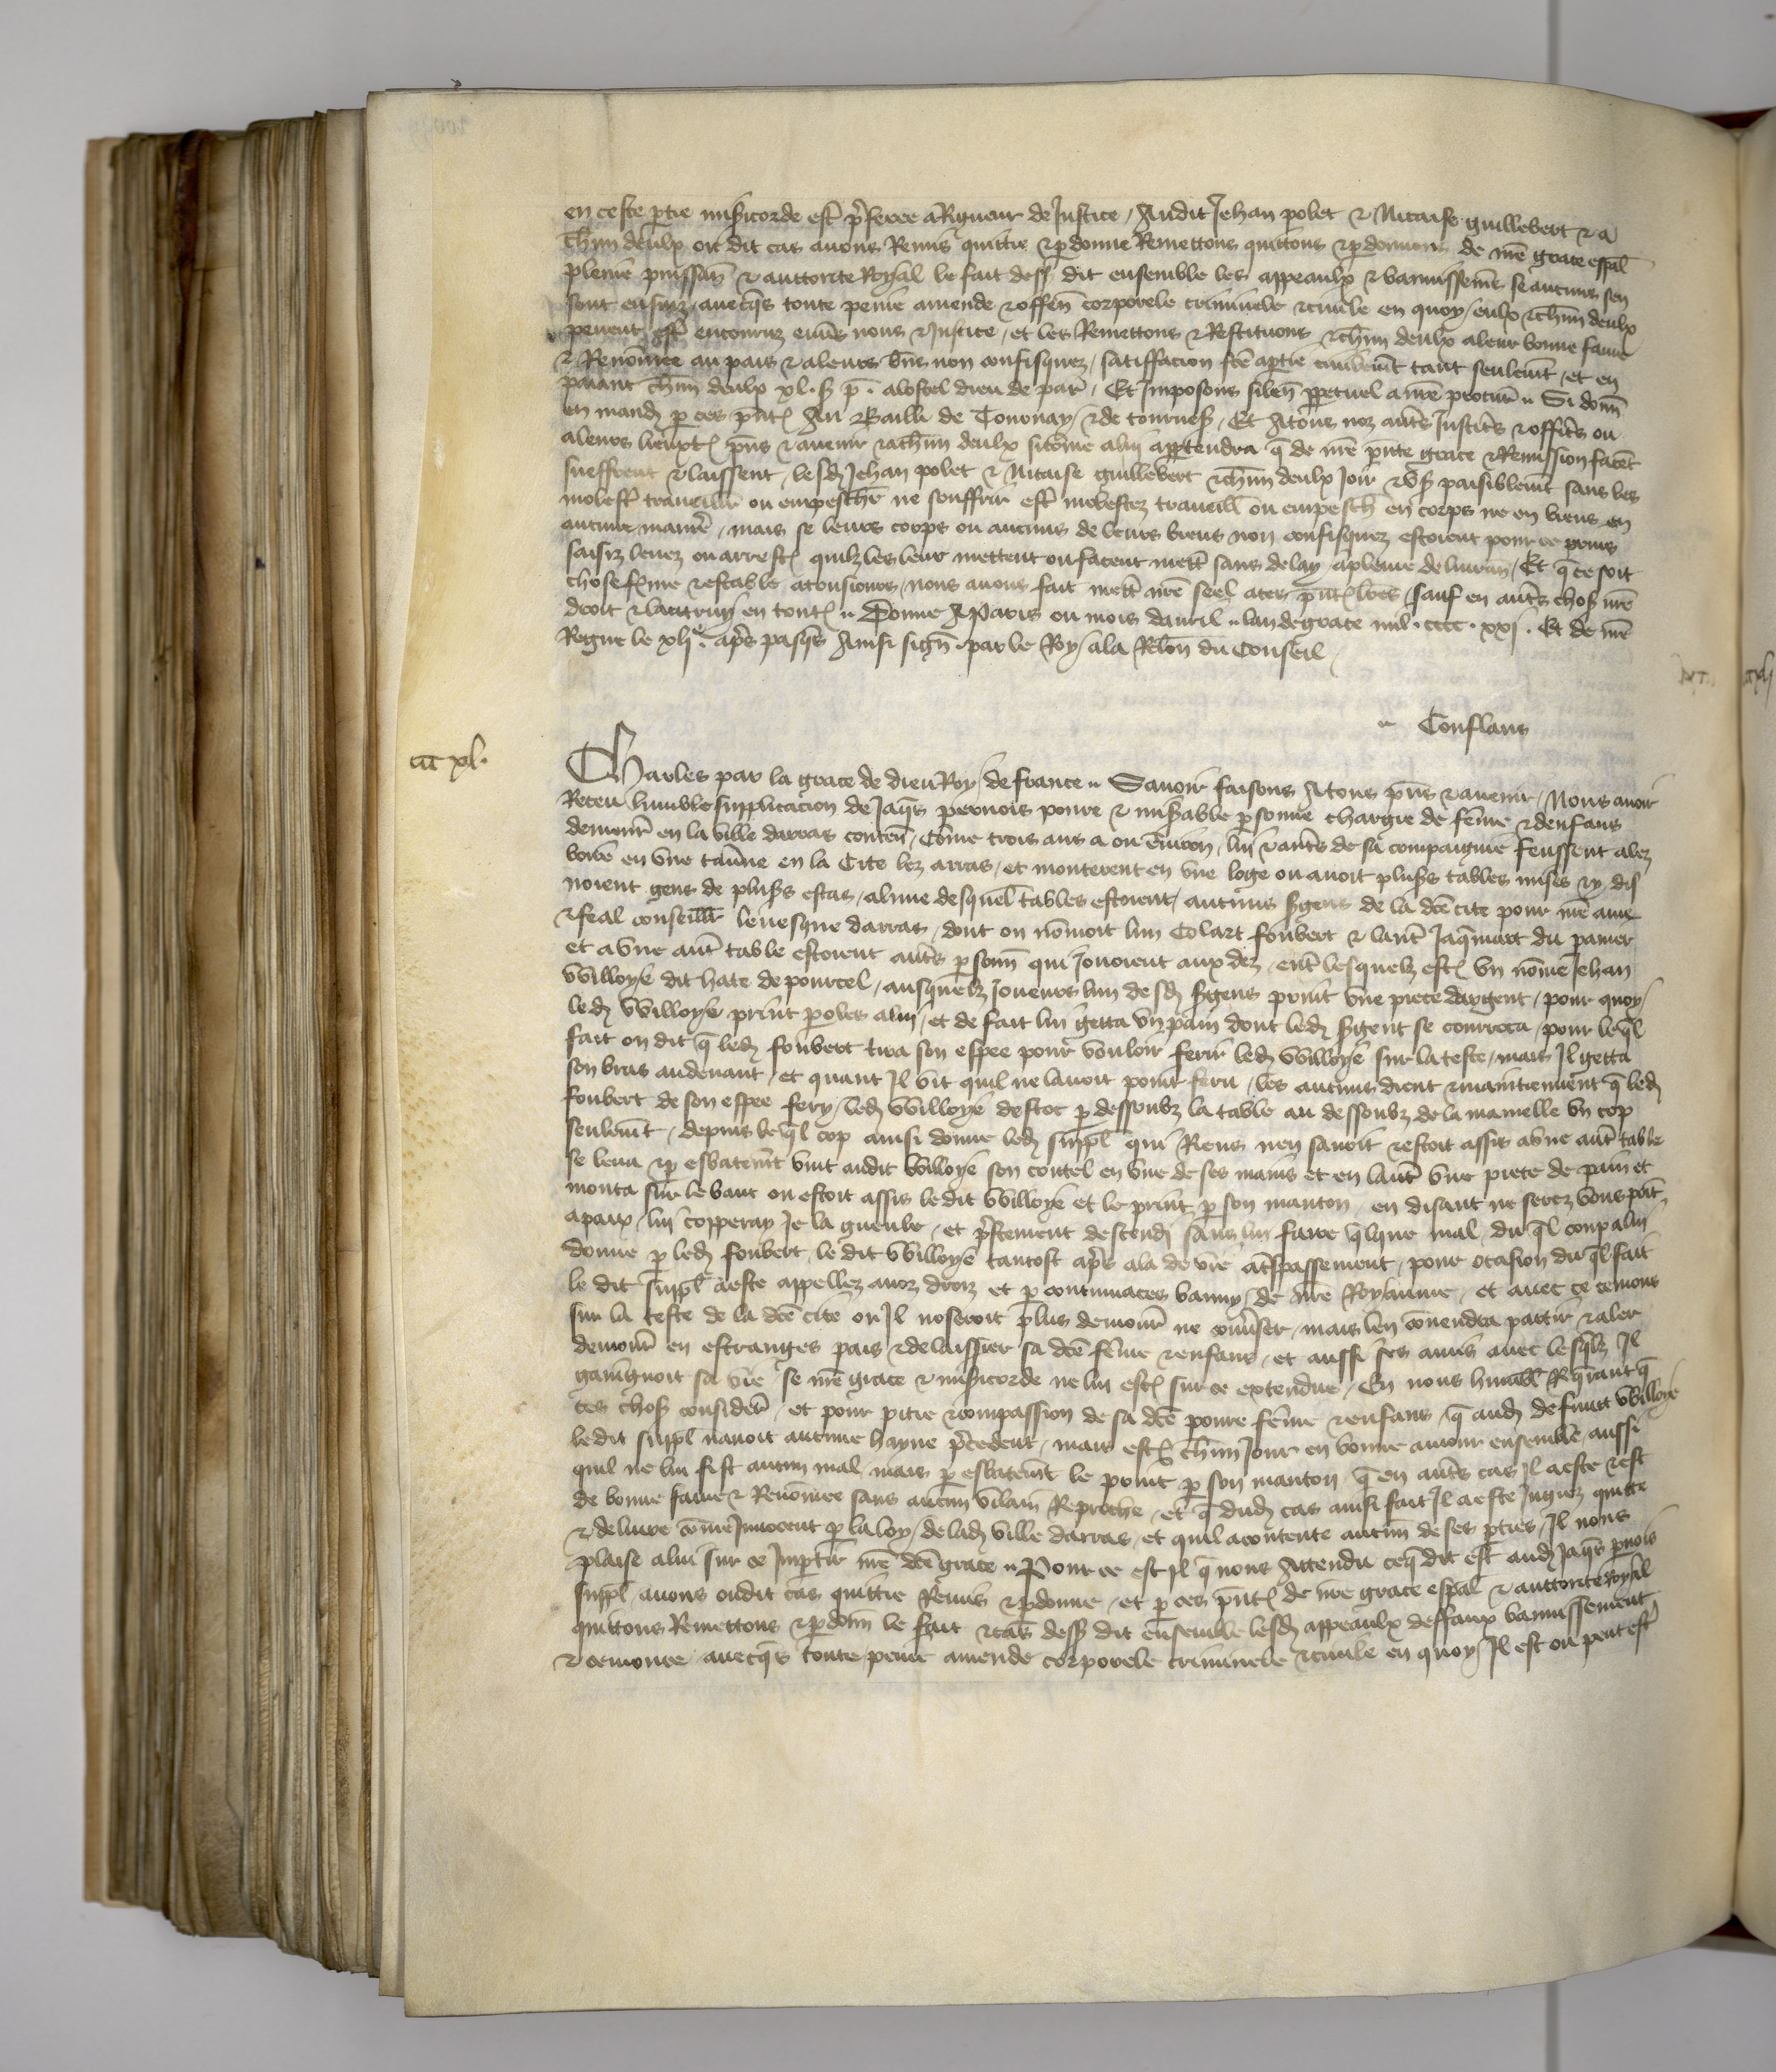 en ceste ptie misicorde est pferee a Rigueur de Justice / Audit Jehan polet & Nicaise guillebert & a
chun deulx ou dit cas auons Remis quittie & pdonne Remettons quittons & pdonnons de nre grace espal
pleine puissan & auctorite Royal le fait dess dit ensemble les appeaulx & bannissemes se aucuns sen
sont ensuiz / auecqs toute peine amende & offen corporele criminele & ciuile en quoy / eulx & chun deulx
peuent estre encouruz enuers nous & Justice / et les Remettons & Restituons & chun deulx a leur bonne fame
& Renomee au pais & a leurs bns non confisquez / satiffacion fce a ptie ciuilemt tant seulemt / et en
paiant chun deulx xl. s p. a lostel dieu de par / Et Imposons silen ppetuel a nre procur Si donn
en mand p ces pnt Au Bailli de Tournay / & de tournes / Et A tous noz auts Justics & offics ou
a leurs lieuxt pns & auenir & a chun deulx si come a lui apptendra q de nre pnte grace & Remission facet
sueffrent & laissent / lesd Jehan polet & Nicaise guillebert & chun deulx Joir & us paisiblemt sans les
molest trauaillr ou empeschr ne souffrir est molestez trauaill ou empesch en corps ne en biens en
aucune manie / mais se leurs corps ou aucuns de leurs biens non confisquez estoient pour ce prins
saisiz leuez ou arrest quilz les leur mettent ou facent mett sans delay a pleine deliuran / Et q ce soit
chose ferme & estable a tousiours / nous auons fait mett nre seel a ces pnt lres / sauf en auts chos nre
droit & lautruy en tout Donne A Paris ou mois dauril lan de grace mil. cccc. xxj. Et de nre
Regne le xlj e. aps pasqs Ainsi sign. par le Roy / a la Rlon du Conseil /
Conflans
cc xl.
Charles par la grace de dieu Roy / de france Sauoir faisons A tous pns & auenir / Nous auoir
Receu lumble supplicacion de Jaqs pronois poure & misable psonne chargie de feme & denfans
demour en la ville darras conten / Come trois ans a ou enuiron / lui & auts de sa compaignie feussent alez
boire en une tauerne en la Cite lez arras / et monterent en une loge ou auoit pluss tables mises & y dis
noient gens de pluss estas / a lune desquel tables estoient / aucuns sgens de la dce cite pour nre ame
& feal conseillr leuesque darras / dont on nomoit lun Colart foubert & laut Jaqmart du pamer
et a une aut table estoient auts psonn qui Jouoient aux dez / ent lesquelz est un nome Jehan
Willoye dit hate de pourcel / ausquelz Joueurs lun desd sgens print une piece dargent / pour quoy /
led Willoye print poles a lui / et de fait lui getta un pain dont led sgent se courrca / pour leql
fait on dit q led foubert tira son espee pour vouloir ferir led Willoye sur la teste / mais Il getta
son bras audeuant / et quant Il vit quil ne lauoit point feru / les aucuns dient & maintiennent q led
foubert de son espee fery / led Willoye destoc p dessoubz la table au dessoubz de la mamelle un cop
seulemt / depuis leql cop ainsi donne led suppl qui Riens nen sauoit & estoit assis a une aut table
se leua & p esbatemt vint audit Willoye son coutel en une de ses mains et en laut une piece de pain et
monta sur le banc ou estoit assis le dit Willoye et le print p son manton / en disant ne serez vous poit
a paix / lui copperay Je la gueule / et pstement descend sans lui faire qlque mal / du ql coup a lui
donne p led foubert / le dit Willoye tantost aps ala de vie a tspassement / pour ocasion du ql fait
le dit suppl a este appellez a noz droiz et p contumaces banny / de nre Royaume / et auec ce semons
sur la teste de la dce cite ou Il noseroit plus demour ne conuser / mais len couendra partir & aler
demour en estranges pais & delaissier sa dce feme & enfans / et aussi ses amis auec lesqlz Il
gaingnoit sa vie / se nre grace & misicorde ne lui est sur ce extendue / En nous humbl Reqrant q
ces chos consider / et pour pitie & compassion de sa dce poure feme & enfans / q aud defunct Willoye
ledit suppl nauoit aucune hayne pcedent / mais est chun Jour en bonne amour ensemble / aussi
quil ne lui fist aucun mal / mais p esbatemt le print p son manton / q en auts cas Il a este & est
de bonne fame & Renomee sans aucun vilain Reproche / et q dud cas ainsi fait Il a este Jugez quitte
& deliure come Innocent p la loy / de lad ville darras / et quil a contente aucun de ses pties / Il nous
plaise a lui sur ce Imptir nre dce grace Pour ce est Il q nous Attendu ceq dit est aud Jaqs pronois
suppl auons oudit cas quittie Remis & pdonne / et p ces pnt de nre grace espal & auctorite royal
quittons Remettons & pdonn le fait & cas dess dit ensemble lesd appeaulx deffaux bannissement
& semonce / auecqs toute peine amende corporele criminele & ciuile en quoy / Il est ou peut est